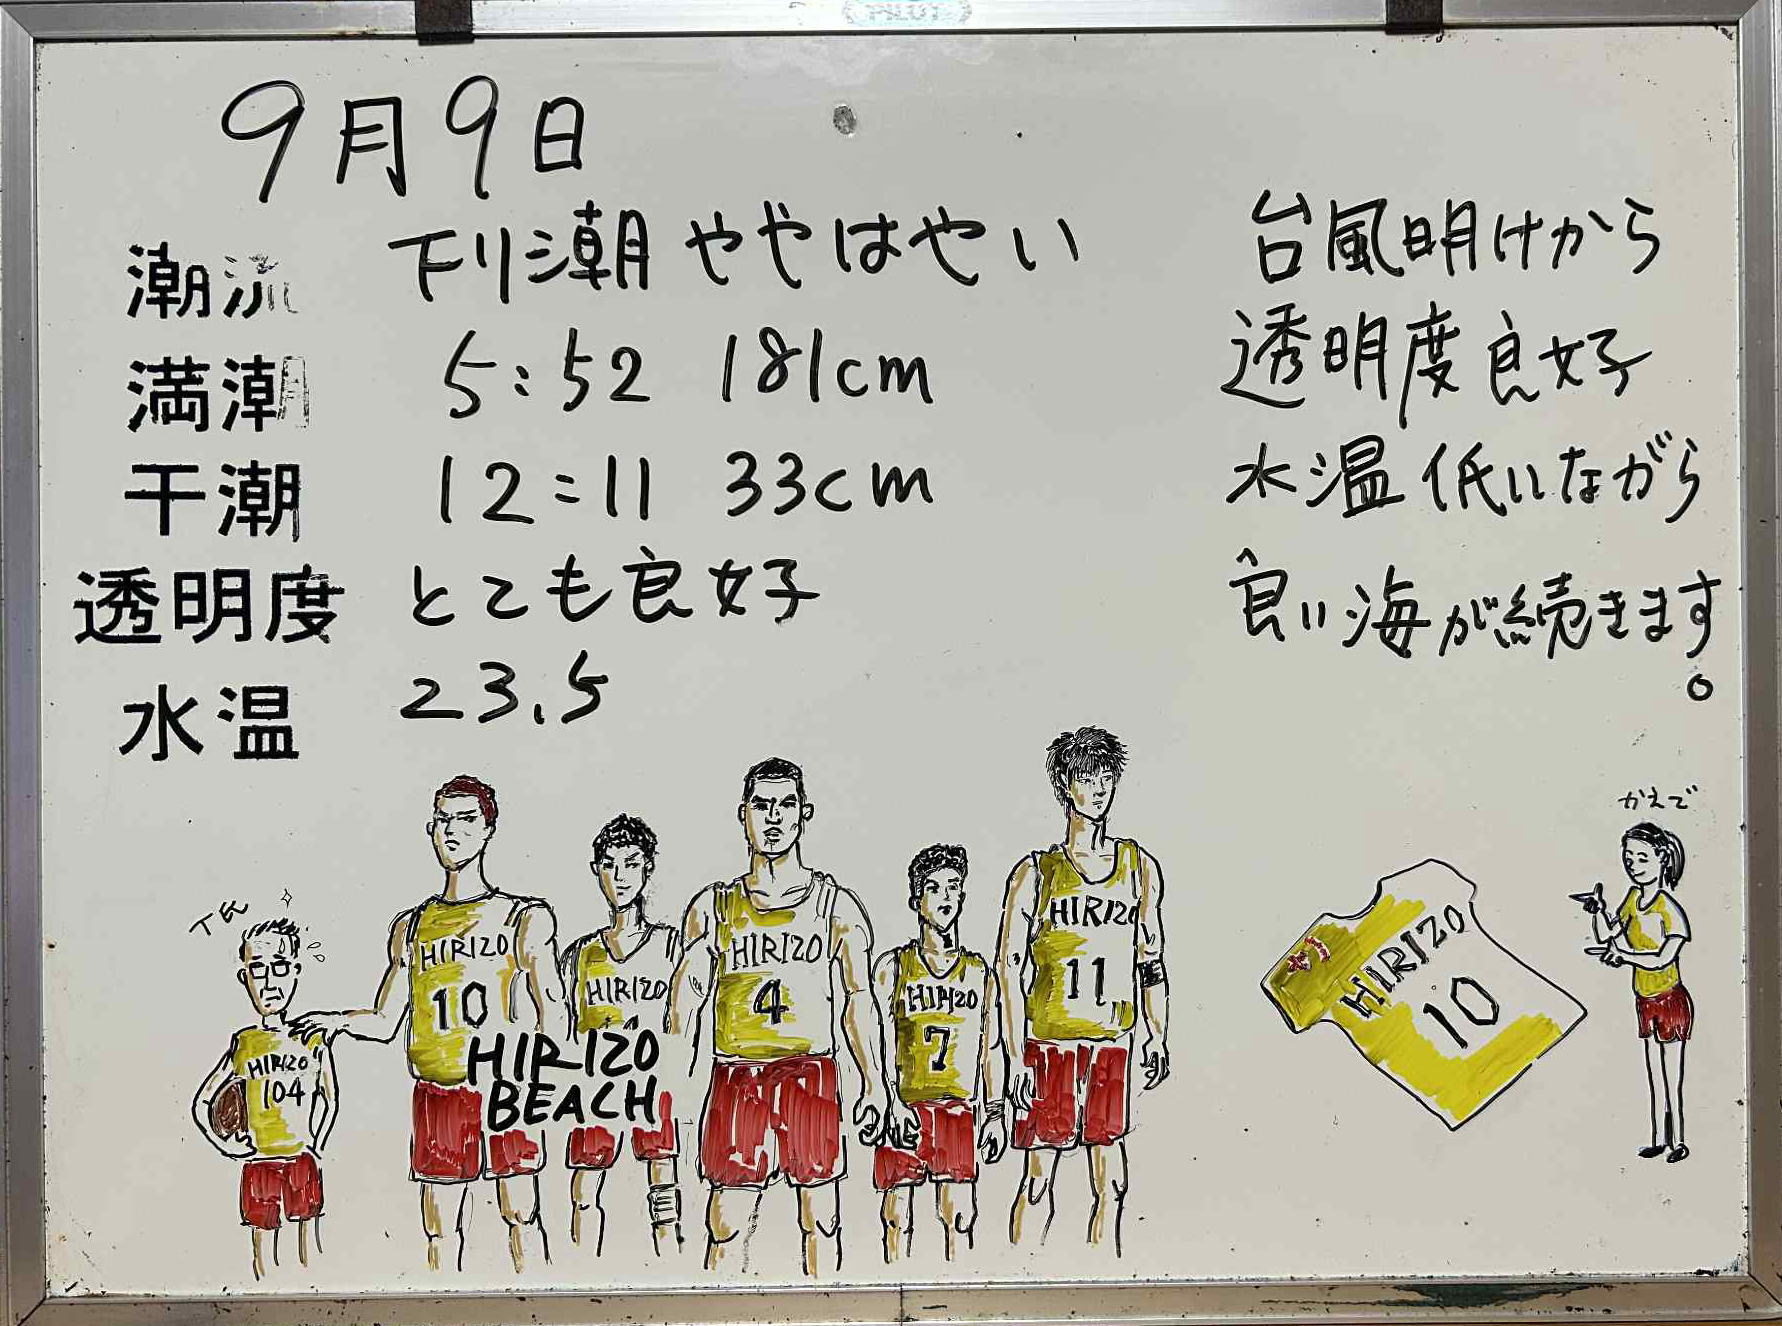 PILOT
9月9日
潮流 下り潮 ややはやい
満潮 5:52 181cm
干潮 12:11 33cm
透明度 とても良好
水温 23.5
台風明けから
透明度良好
水温低いながら
良い海が続きます。
かえで
HIRIZO
104
HIRIZO
10
HIRIZO
HIRIZO
BEACH
HIRIZO
4
HIRIZO
7
HIRIZO
11
HIRIZO
10